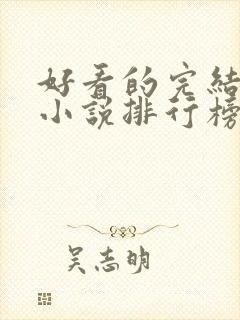 好看的完結
小說排行榜
吴志明